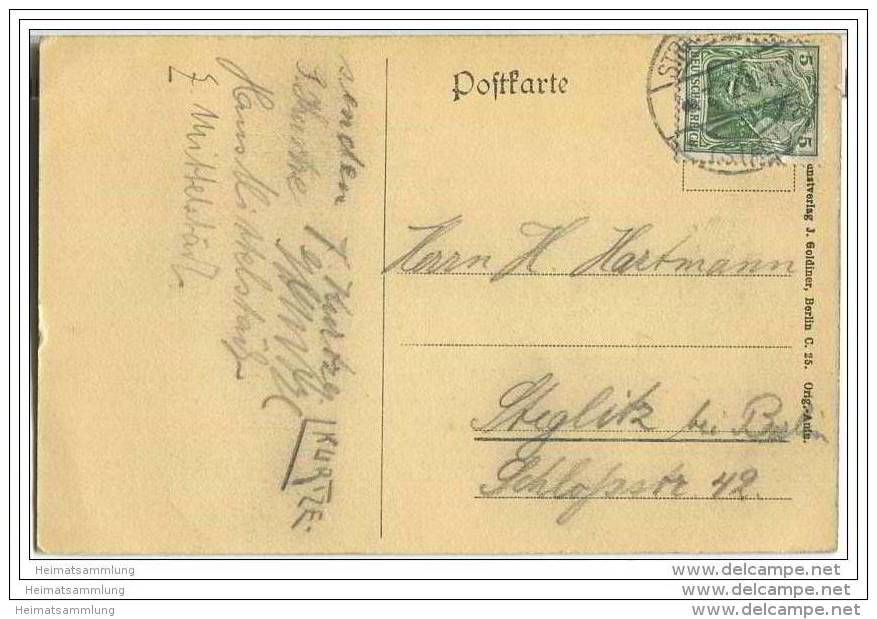 Postkarte
STRA
5 DEUTSCHES REICH 5
Herrn H. Hartmann
Steglitz bei Berlin
Schloßstr. 42.
Kunstverlag J. Goldiner, Berlin C. 25. Orig.-Aufn.
senden
KURTZE.
Hans Mittelstädt
Mittelstädt
Heimatsammlung www.delcampe.net
Heimatsammlung www.delcampe.net
Heimatsammlung www.delcampe.net